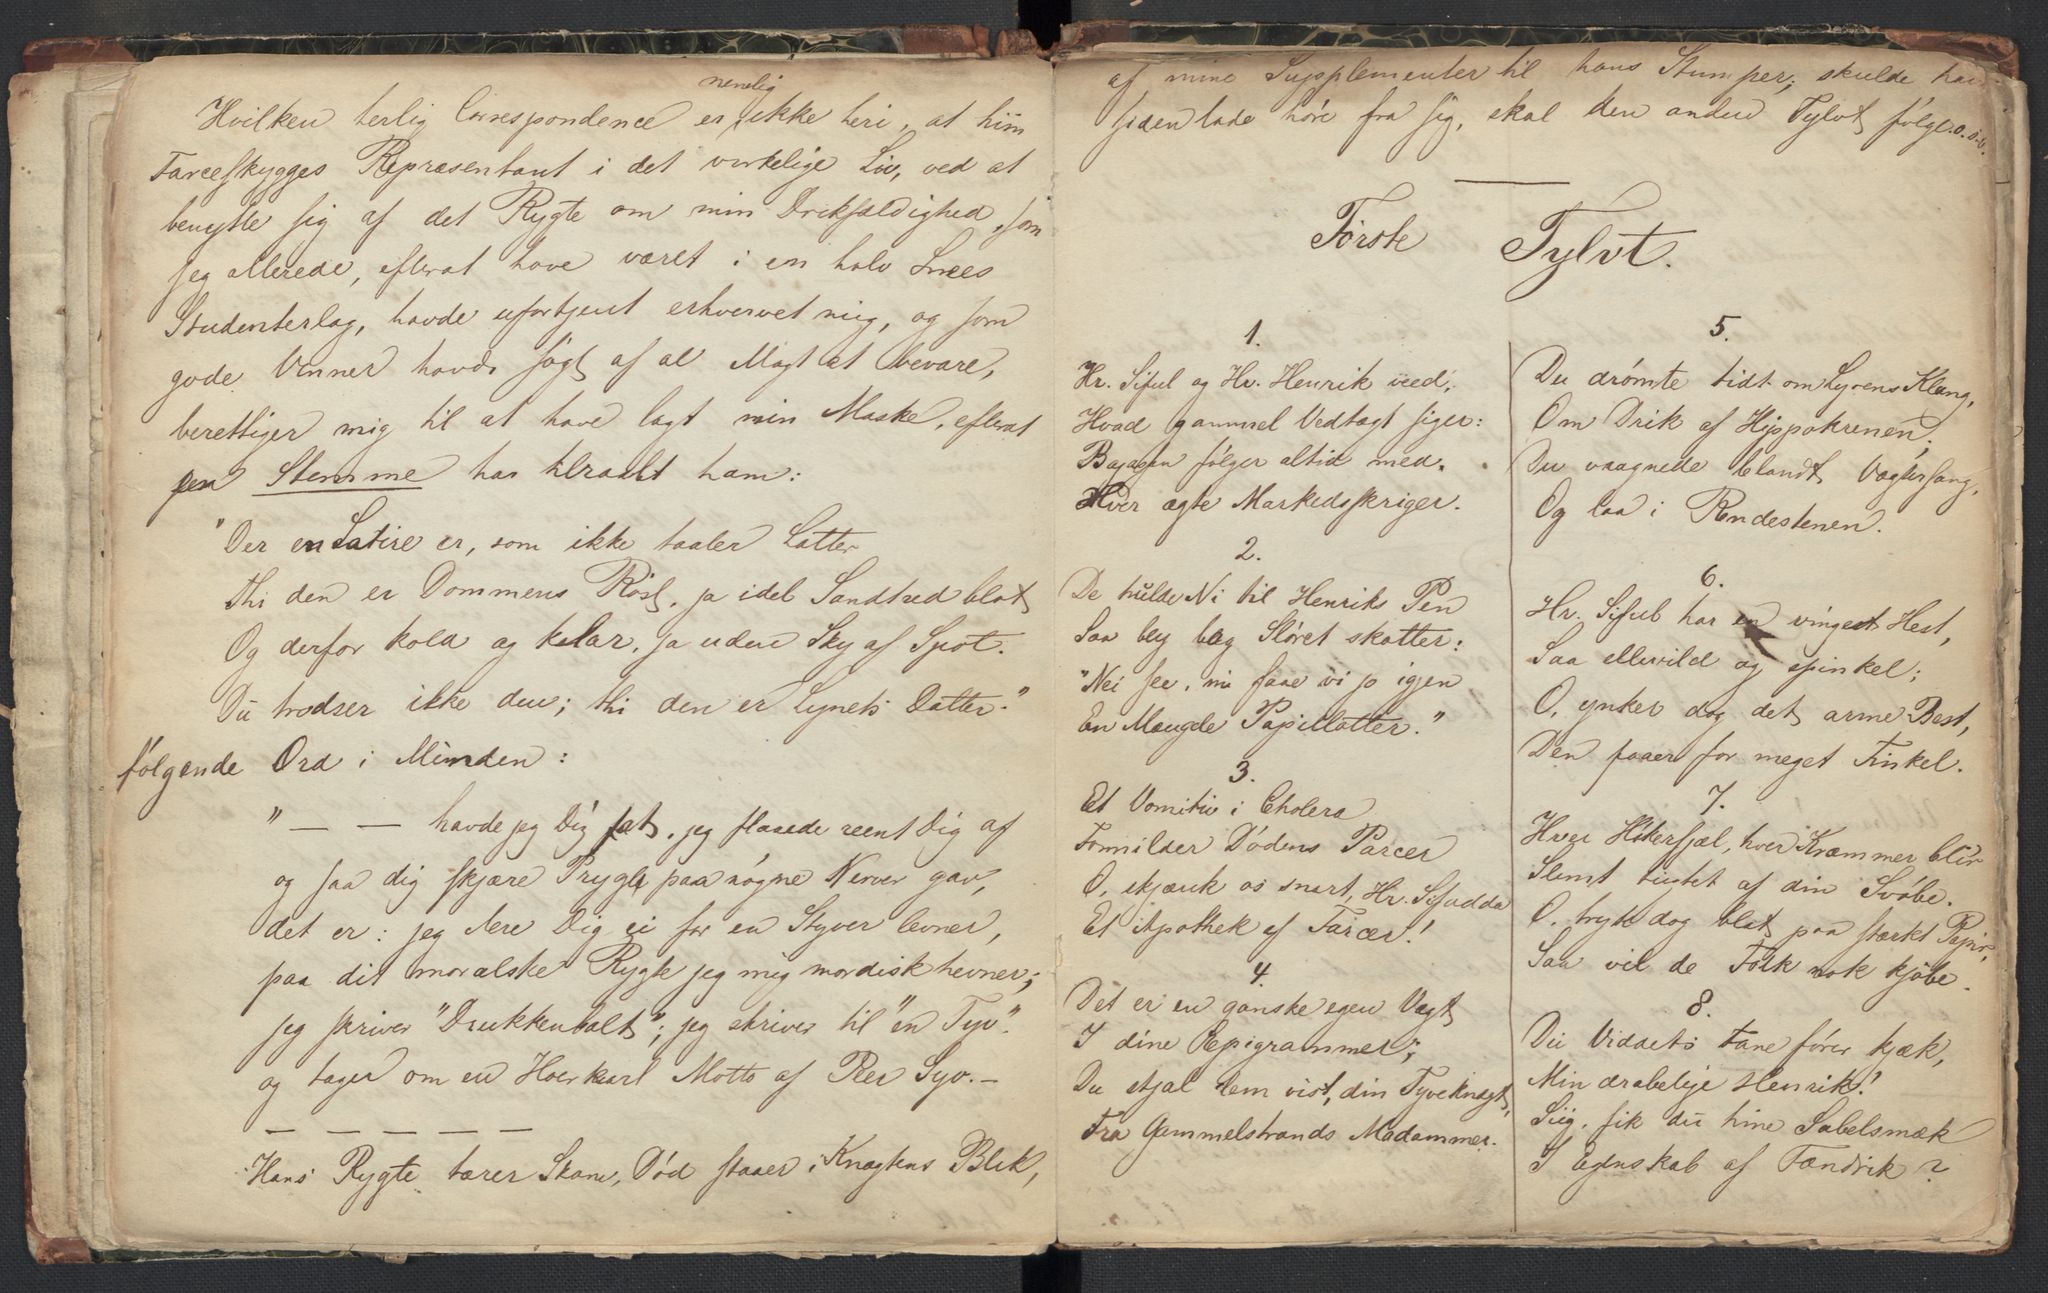 nemlig
Hvilken herlig Correspondence er ikke heri, at hiin
Farceskygges Repræsentant i det virkelige Liv, ved at
benytte sig af det Rygte om min Drikfældighed, som
jeg allerede, efterat have været i en halv Snees
Studenterlag, havde ufortjent erhvervet mig, og som
gode Venner havde søgt af al Magt at bevare,
berettiger mig til at have lagt min Maske, efterat
Stemme har tilraabt ham:
"Der en Satire er, som ikke taaler Latter
thi den er Dommens Røst, ja idel Sandhed blot
Og derfor kold og klar, ja uden Sky af Spot.
Du trodser ikke den; thi den er Lynets Datter."
følgende Ord i Munden:
"— — havde jeg Dig fat, jeg flaaede reent Dig af
og saa dig skjære Prygl paa nøgne Nerver gav,
det er: jeg Ære Dig ei for en Styver levner,
paa dit moralske Rygte jeg mig mordisk hevner;
jeg skriver "Drukkenbolt"; jeg skriver til "en Tyv".
og tager om en Hoerkarl Motto af Peer Syv. —
— — — — —
Hans Rygte bærer Skam, Død staaer i Knægtens Blik,
af mine Supplementer til hans Stumper; skulde han
siden lade høre fra sig, skal den anden Tylvt følge o.s.v.
Første Tylvt.
1.
Hr. Siful og Hr. Henrik veed,
Hvad gammel Vedtægt siger:
Bagagen følger altid med
Hver ægte Markedskriger.
2.
De hulde Ni til Henriks Pen
Saa bly bag Sløret skotter:
"Nei see, nu faae vi jo igjen
En Mængde Papillotter."
3.
Et Vomitiv i Cholera
Formilder Dødens Parcer
O, skjænk os snart, Hr. Sifadda
Et Apothek af Farcer!
4.
Det er en ganske egen Vægt
I dine Epigrammer;
Du stjal dem vist, din Tyveknægt,
Fra Gammelstrands Madammer.
5.
Du drømte tidt om Lyrens Klang,
Om Drik af Hippokrenen;
Du vaagnede blandt Vægtersang,
Og laa i Rendestenen.
6.
Hr. Siful har en vinget Hest,
Saa ellevild og spinkel;
O, ynker dog det arme Bæst,
Den faaer for meget Finkel.
7.
Hver Høkersjæl, hver Kræmmer blir
Slemt tugtet af din Svøbe.
O, tryk dog blot paa stærkt Papir,
Saa vil de Folk nok kjøbe.
8.
Du Viddets Fane fører kjæk,
Min drabelige Henrik!
Siig, fik du hine Sabelsmæk
I Egenskab af Fændrik?